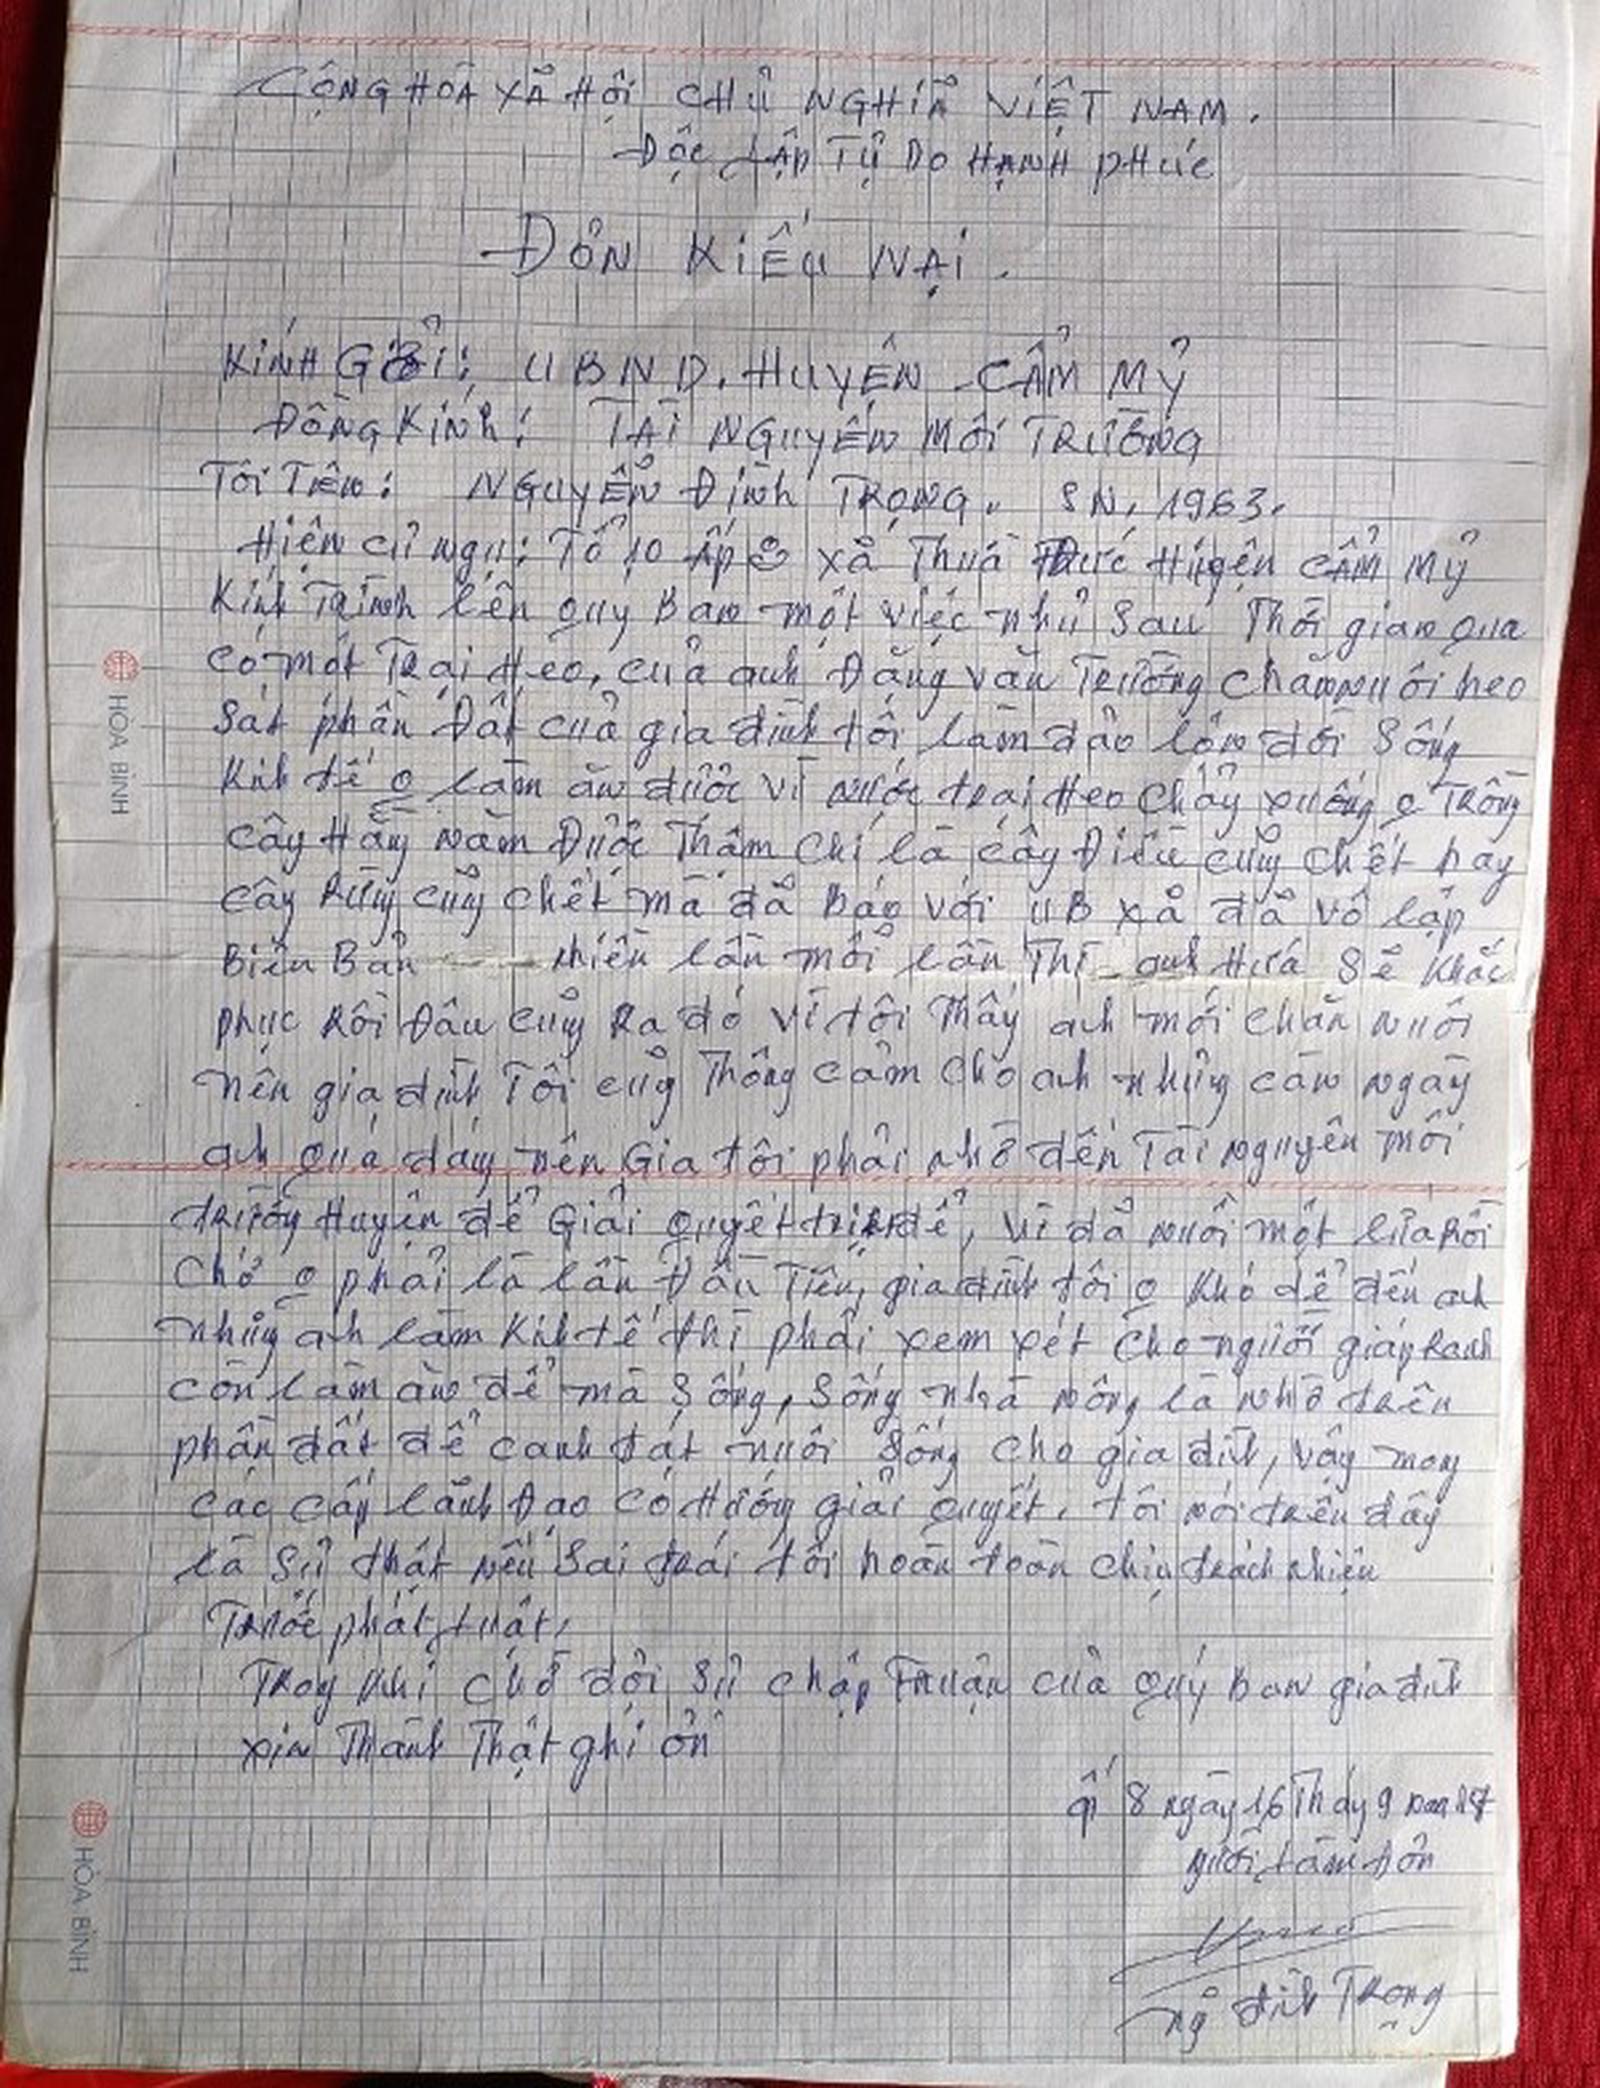 CỘNG HÒA XÃ HỘI CHỦ NGHĨA VIỆT NAM.
Độc Lập Tự Do Hạnh Phúc
ĐƠN KIẾU NẠI.
Kính Gởi: UBND. HUYỆN CẨM MỸ
Đồng Kính: TÀI NGUYÊN MÔI TRƯỜNG
Tôi Tên: NGUYỄN Đình TRỌNG. SN, 1963.
Hiện cư ngụ: Tổ 10 Ấp 8 xã Thừa Đức Huyện CẨM MỸ
Kính Trình lên quy Ban một việc như sau Thời gian qua
có một Trại Heo, của anh Đặng văn Trường chăn nuôi heo
Sát phần Đất của gia đình tôi làm đảo lộn đời Sống
Kinh tế o làm ăn được vì nước trại Heo chảy xuống o Trồng
cây Hằng năm Được Thậm chí là cây Điều cũng chết hay
cây Rừng cũng chết mà đã Báo với UB xã đã vô lập
Biên Bản nhiều lần mỗi lần Thì anh Hứa Sẽ Khắc
phục Rồi Đâu cũng Ra đó vì tôi Thấy anh mới chăn nuôi
nên gia đình Tôi cũg Thông cảm cho anh nhưng càn ngày
anh quá dáng nên Gia tôi phải nhờ đến Tài nguyên môi
trường Huyện để Giải quyết triệt để, vì đã nuôi một lứa Rồi
Chớ o phải là lần Đầu Tiên, gia đình tôi o Khó dễ đến anh
nhưng anh làm Kinh tế thì phải xem xét cho người giáp Ranh
còn làm ăn để mà Sống, Sống nhà nông là nhờ trên
phần đất để canh tát nuôi Sống cho gia đình, vậy mong
các cấp lãnh Đạo có Hướng giải quyết. tôi nói trên đây
là Sự thật nếu Sai trái tôi hoàn toàn chịu trách nhiệm
Trước phát luật,
Trong khi chờ đợi Sự chấp Thuận của quý Ban gia đình
xin Thành Thật ghi ơn
ấp 8 ngày 16 Tháng 9 năm
người làm đơn
Ng đình Trọng
HÒA BÌNH
HÒA BÌNH